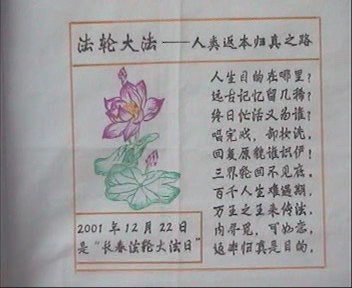 法轮大法——人类返本归真之路
人生目的在哪里？
远古记忆留几稀？
终日忙活又为谁？
唱完戏，卸妆洗，
回复原貌谁识伊？
三界轮回不见底，
百千人生难遇期，
万王之王来传法，
内寻觅，可如意，
返本归真是目的。
2001年12月22日
是“长春法轮大法日”